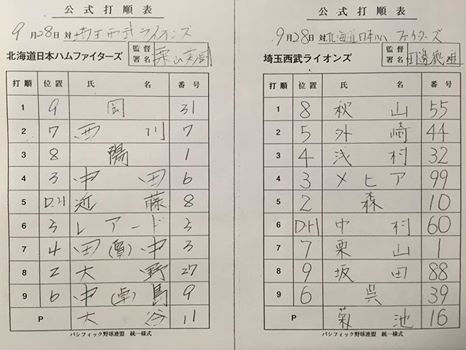 公式打順表
9月28日 対 埼玉西武ライオンズ
北海道日本ハムファイターズ 監督署名 栗山英樹
打順 位置 氏名 番号
1 9 岡 31
2 7 西川 7
3 8 陽 1
4 3 中田 6
5 DH 近藤 8
6 5 レアード 5
7 4 田(賢)中 3
8 2 大野 27
9 6 中(卓)島 9
P 大谷 11
パシフィック野球連盟 統一様式
公式打順表
9月28日 対 北海道日本ハムファイターズ
埼玉西武ライオンズ 監督署名 田邊徳雄
打順 位置 氏名 番号
1 8 秋山 55
2 5 外崎 44
3 4 浅村 32
4 3 メヒア 99
5 2 森 10
6 DH 中村 60
7 7 栗山 1
8 9 坂田 88
9 6 呉 39
P 菊池 16
パシフィック野球連盟 統一様式